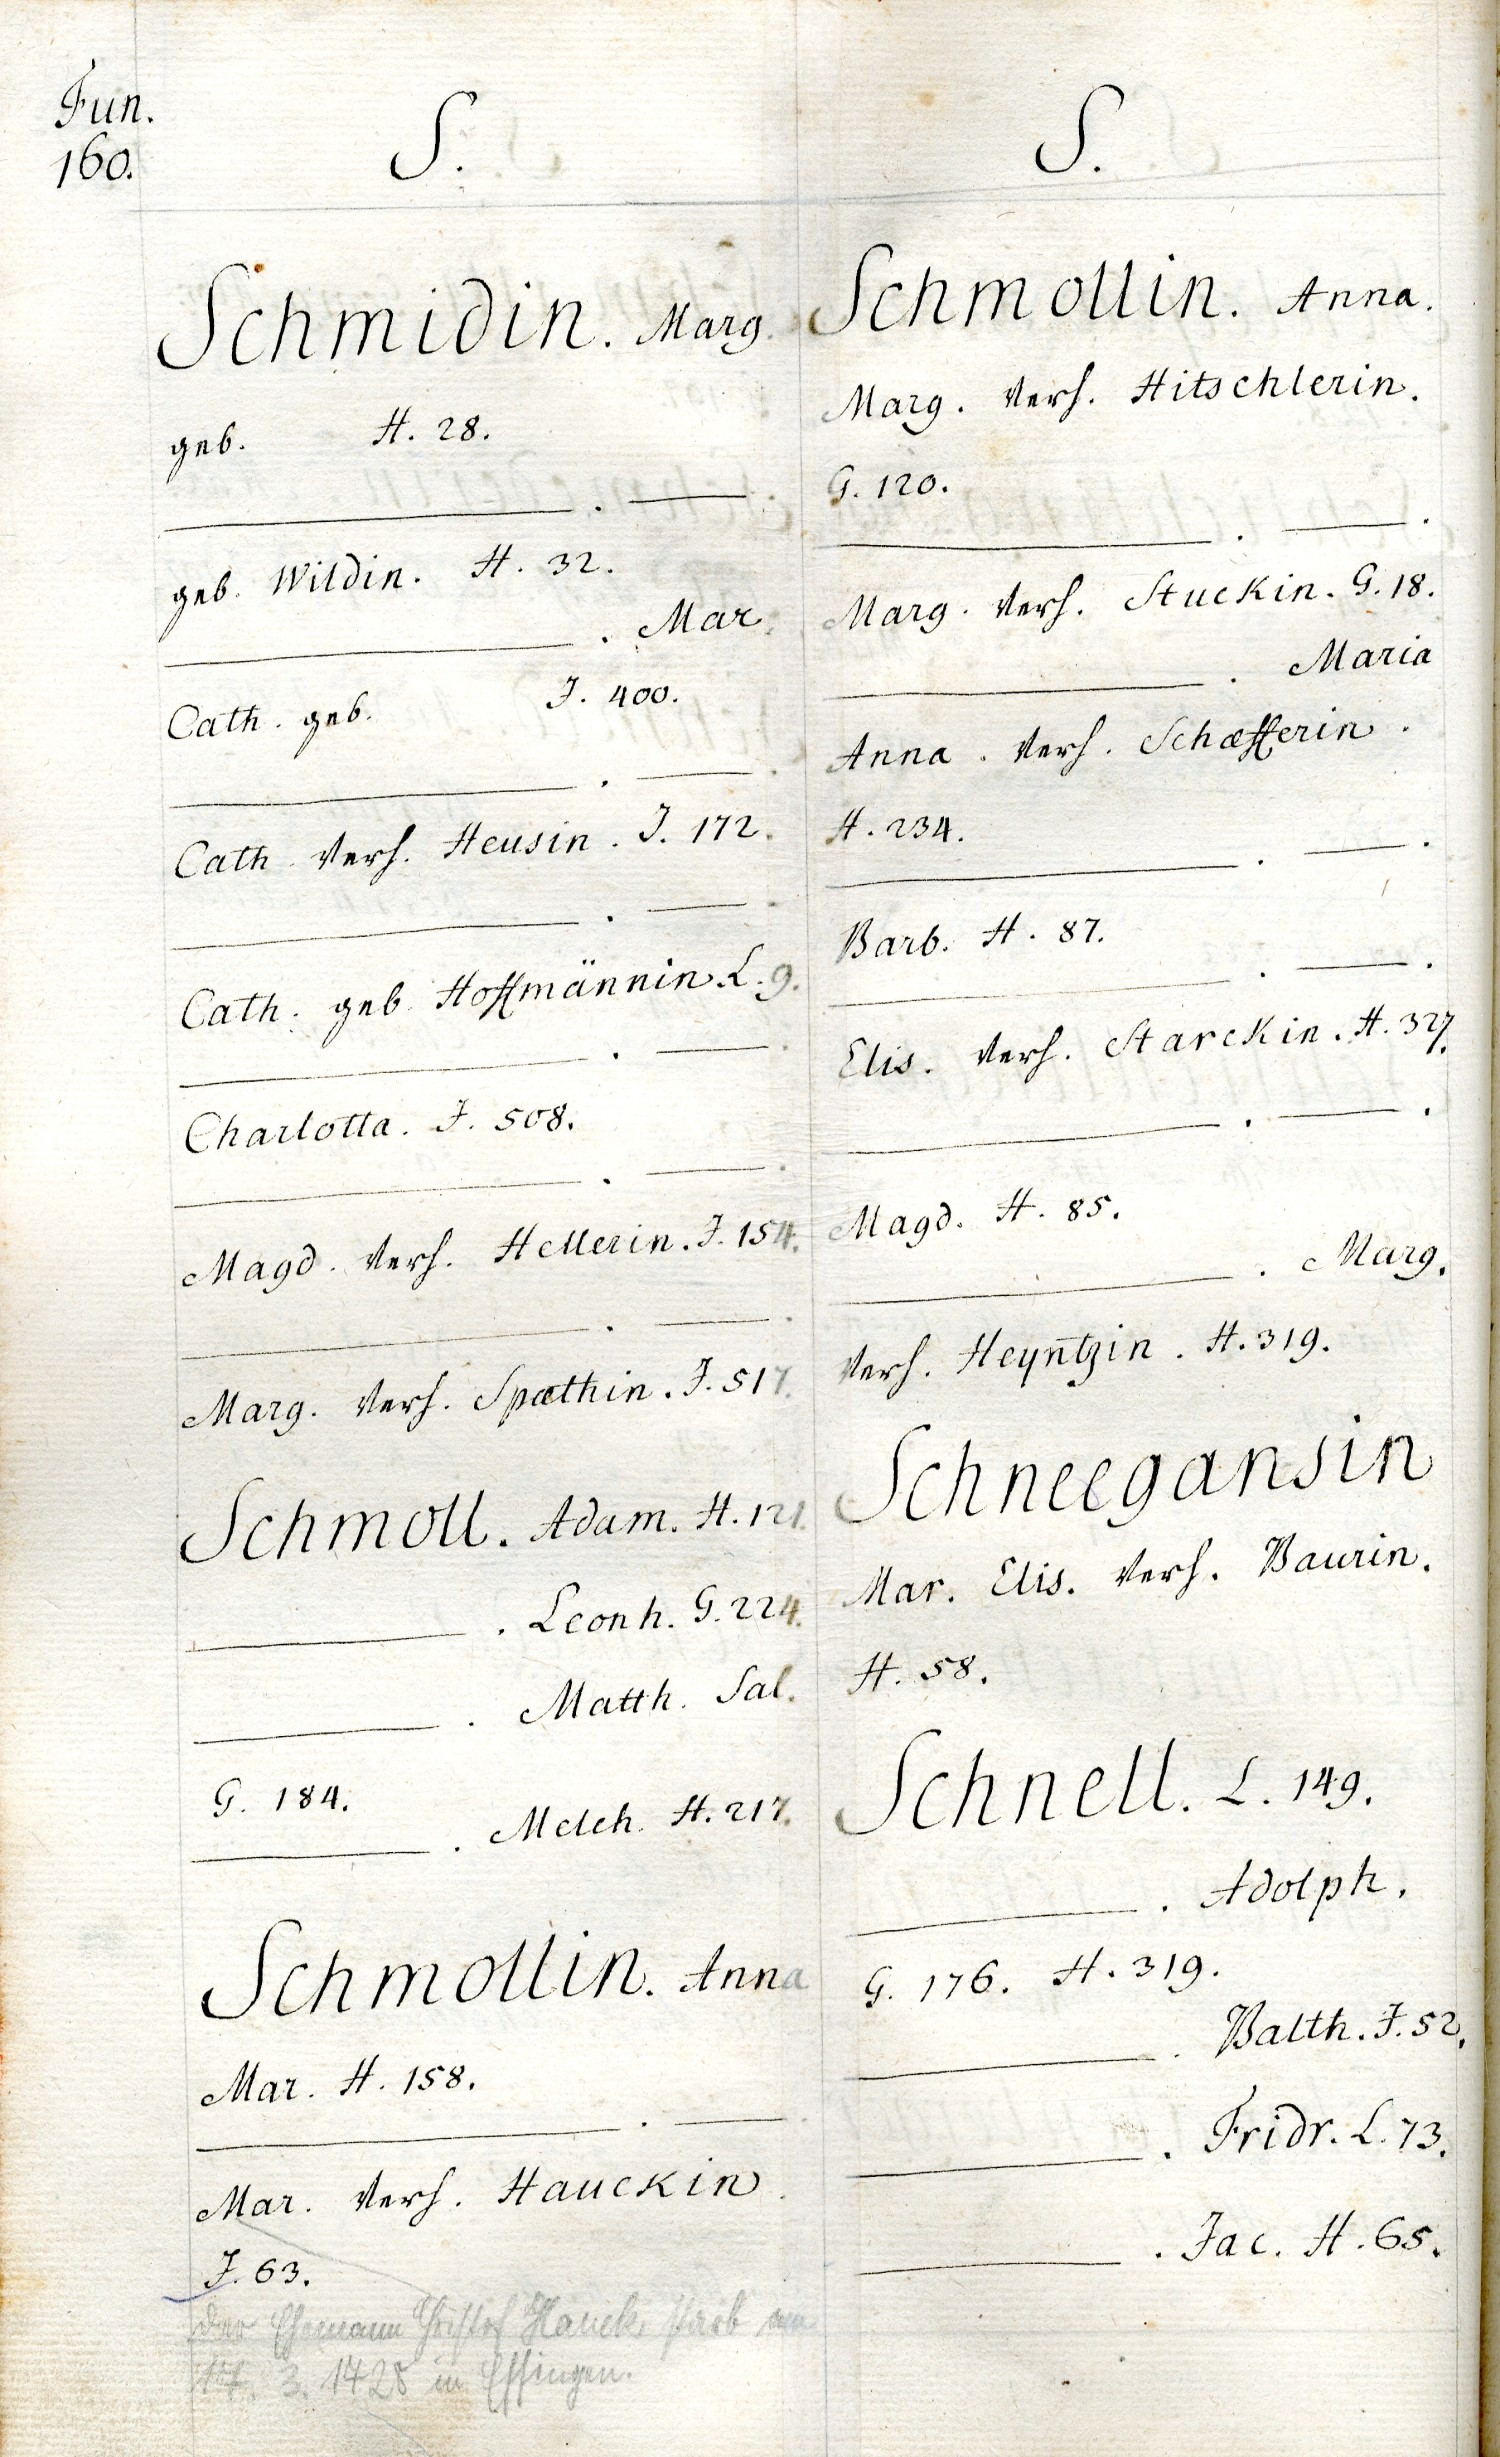 Fun.
160.
S.
Schmidin. Marg.
geb. H. 28.
———. ———.
geb. Wildin. H. 32.
———. Mar.
Cath. geb. J. 400.
———. ———.
Cath. verh. Heusin. J. 172.
———. ———.
Cath. geb. Hoffmännin. L. 9.
———. ———.
Charlotta. J. 508.
———. ———.
Magd. verh. Hellerin. J. 154.
———. ———.
Marg. verh. Spæthin. J. 517.
Schmoll. Adam. H. 121.
———. Leonh. G. 224.
———. Matth. Sal.
G. 184.
———. Melch. H. 217.
Schmollin. Anna
Mar. H. 158.
———. ———.
Mar. verh. Hauckin.
J. 63.
Der Ehemann Christof Hauck starb am
3. 1728 in Essingen.
S.
Schmollin. Anna.
Marg. verh. Hitschlerin.
G. 120.
———. ———.
Marg. verh. Stuckin. G. 18.
———. Maria
Anna. verh. Schæfferin.
H. 234.
———. ———.
Barb. H. 87.
———. ———.
Elis. verh. Starckin. H. 327.
———. ———.
Magd. H. 85.
———. Marg.
verh. Heyntzin. H. 319.
Schneegansin
Mar. Elis. verh. Baurin.
H. 58.
Schnell. L. 149.
———. Adolph.
G. 176. H. 319.
———. Balth. J. 52.
———. Fridr. L. 73.
———. Jac. H. 65.